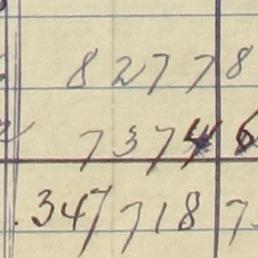 82778
73746
347718 7